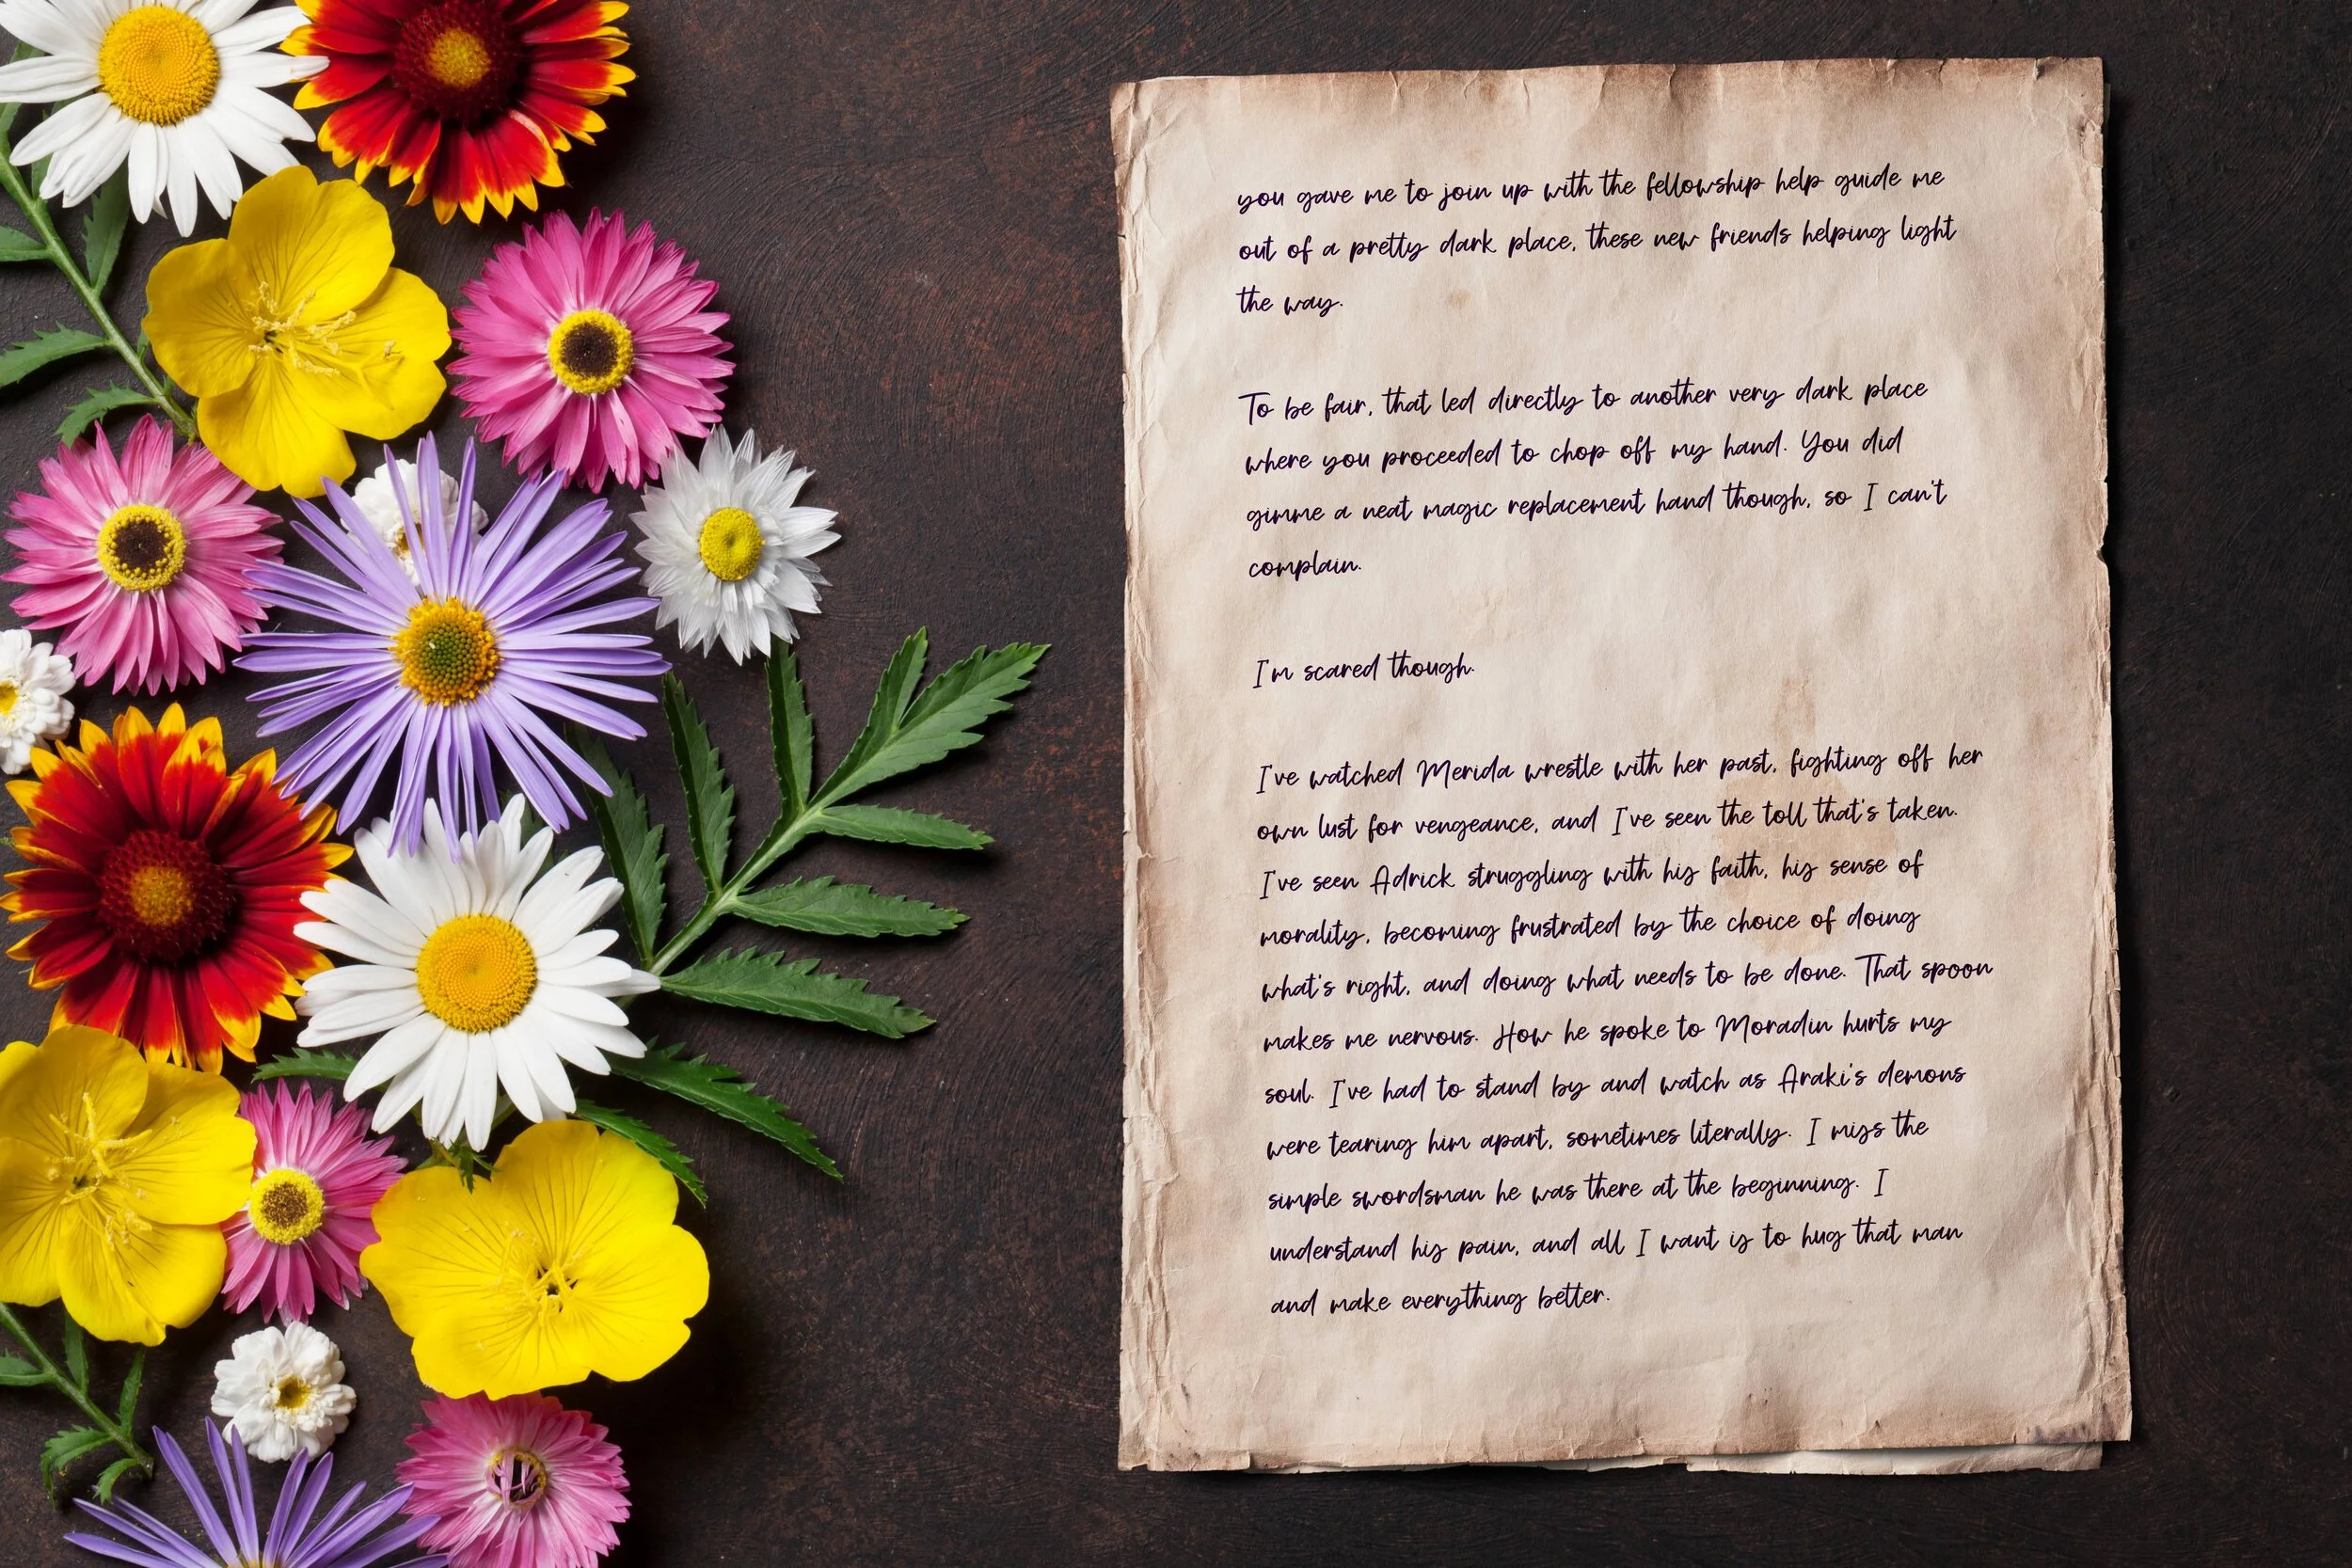 you gave me to join up with the fellowship help guide me
out of a pretty dark place, these new friends helping light
the way.
To be fair, that led directly to another very dark place
where you proceeded to chop off my hand. You did
gimme a neat magic replacement hand though, so I can't
complain.
I'm scared though.
I've watched Merida wrestle with her past, fighting off her
own lust for vengeance, and I've seen the toll that's taken.
I've seen Adrick struggling with his faith, his sense of
morality, becoming frustrated by the choice of doing
what's right, and doing what needs to be done. That spoon
makes me nervous. How he spoke to Moradin hurts my
soul. I've had to stand by and watch as Araki's demons
were tearing him apart, sometimes literally. I miss the
simple swordsman he was there at the beginning. I
understand his pain, and all I want is to hug that man
and make everything better.